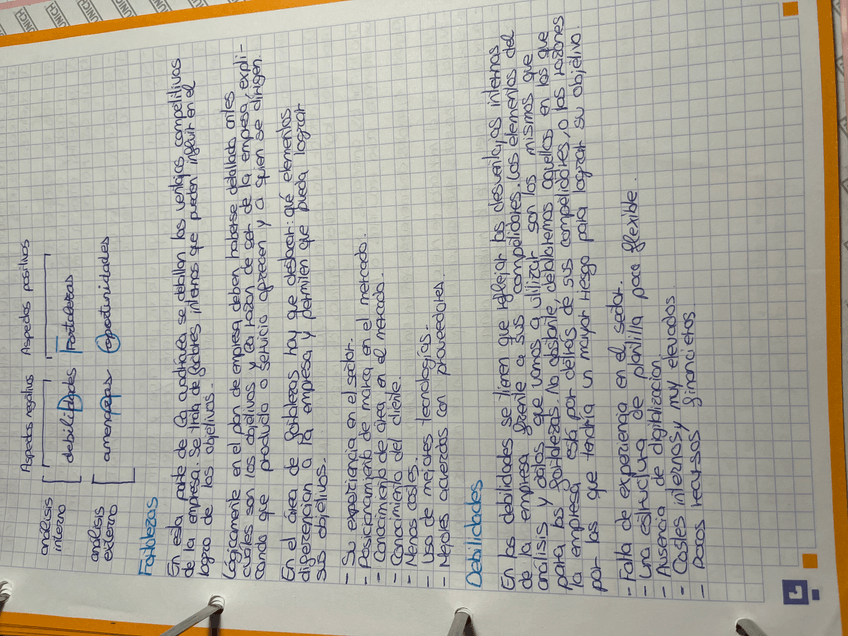 Aspectos negativos Aspectos positivos
análisis interno debilidades Fortalezas
análisis externo amenazas oportunidades
Fortalezas
En esta parte de la auditoría se detallan las ventajas competitivas
de la empresa. Se trata de factores internos que pueden influir en el
logro de los objetivos.
Lógicamente en el plan de empresa deben haberse detallado antes
cuáles son los objetivos y la razón de ser de la empresa, expli-
cando que producto o servicio ofrecen y a quien se dirigen.
En el área de fortalezas hay que destacar: qué elementos
diferencian a la empresa y permiten que pueda lograr
sus objetivos.
- Su experiencia en el sector.
- Posicionamiento de marca en el mercado.
- Conocimiento de área en el mercado.
- Conocimiento del cliente.
- Menos costes.
- Uso de mejores tecnologías.
- Mejores acuerdos con proveedores.
Debilidades
En las debilidades se tienen que reflejar las desventajas internas
de la empresa frente a sus competidores. Los elementos del
análisis y datos que vamos a utilizar son los mismos que
para las fortalezas. No obstante, detallaremos aquellos en los que
la empresa está por detrás de sus competidores, o las razones
por las que tendría un mayor riesgo para lograr su objetivo.
- Falta de experiencia en el sector.
- Una estructura de plantilla poco flexible.
- Ausencia de digitalización
- Costes internos muy elevados
- Pocos recursos financieros